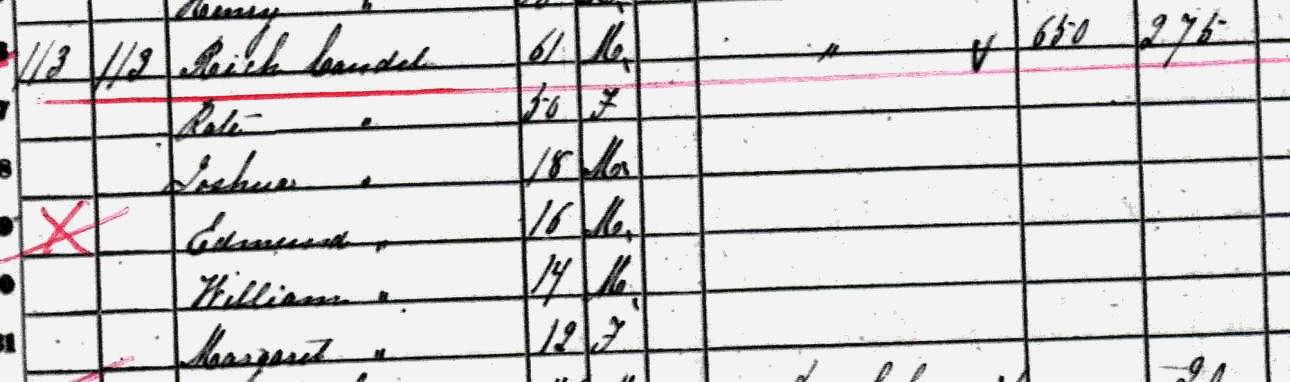 Henry "
113 113 Rich Caudel 61 M. " 650 275
Kate " 50 F
8 Joshua " 18 M.
Edmund " 16 M.
William " 14 M.
Margaret " 12 F